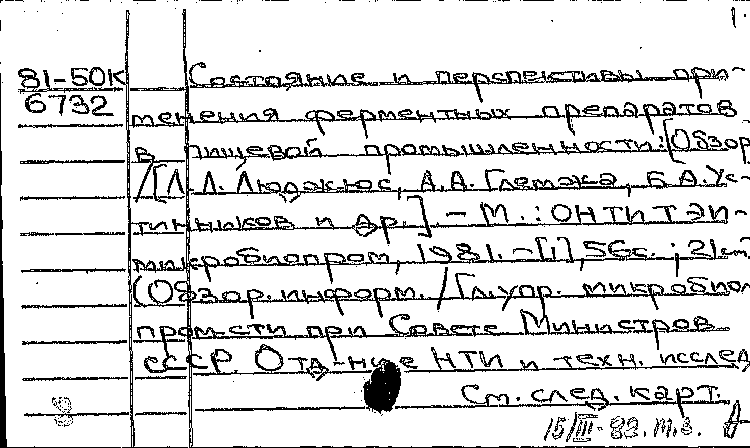 1.
81-50К Состояние и перспективы при-
6732 менения ферментных препаратов
в пищевой промышленности: [Обзор
/[Л.Л. Людожюс, А.А. Глемжа, Б.А. Ус-
тинников и др.] - М.: ОНТИТЭИ-
микробиопром, 1981. - [1], 56с.; 21см
(Обзор. информ. / Гл. упр. микробиол
пром-сти при Совете Министров
СССР. Отд-ние НТИ и техн. исслед
См. след. карт.
15/III-82. М.З.